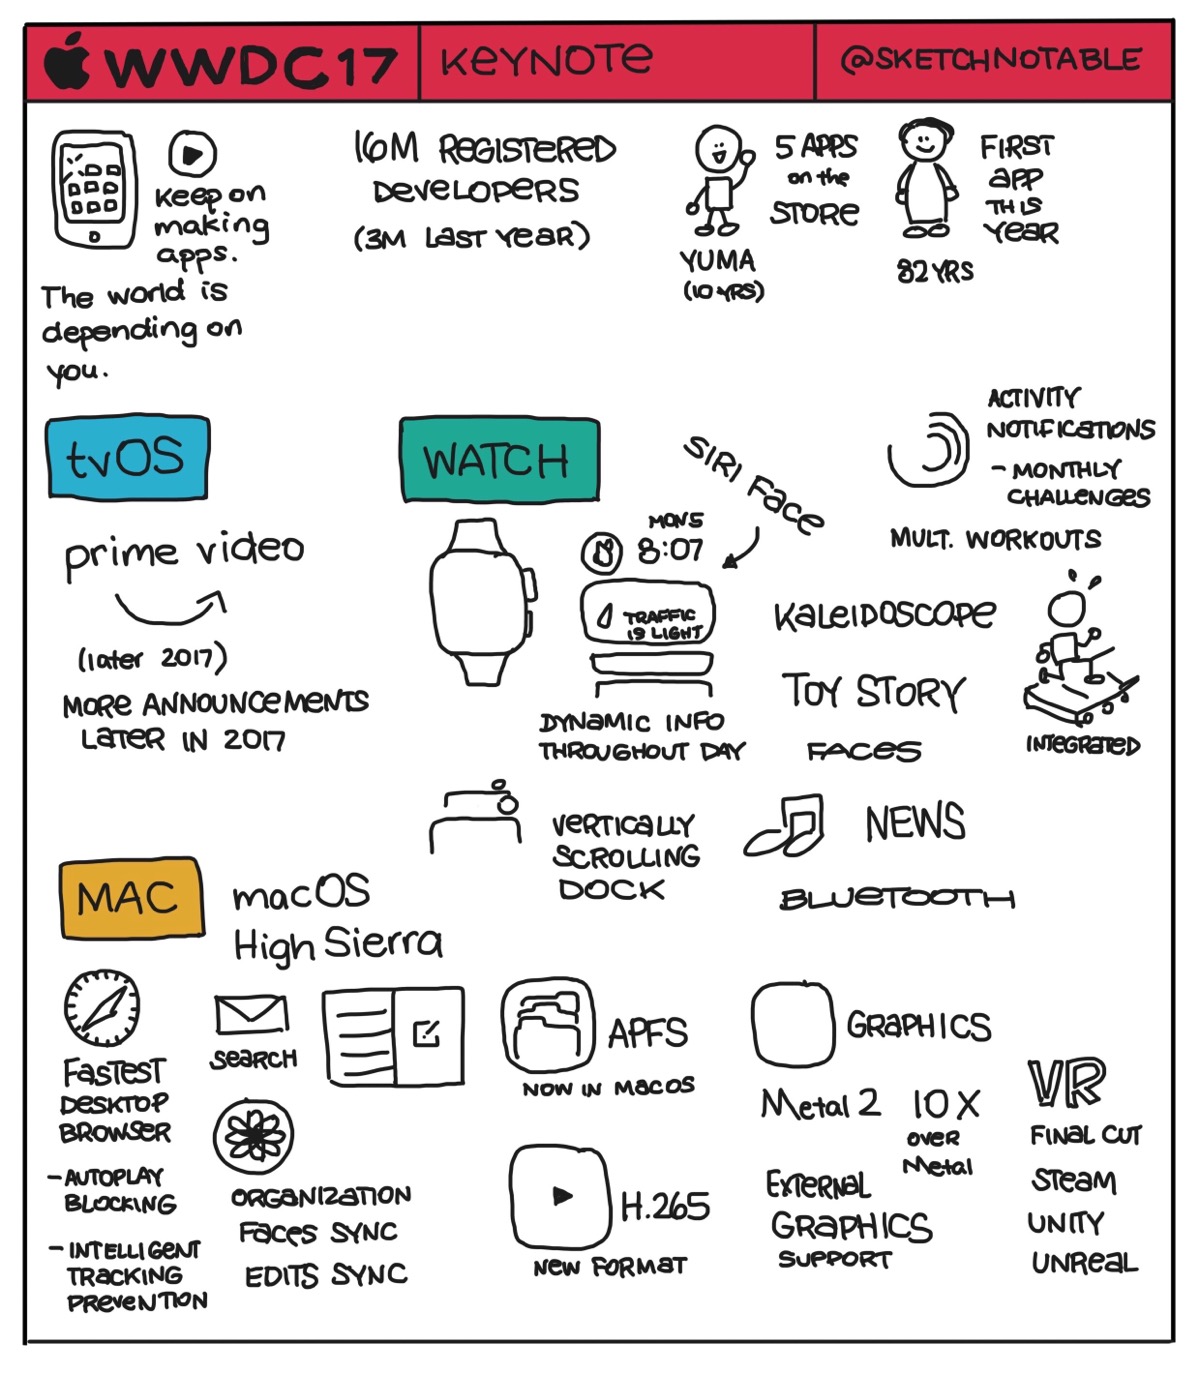 WWDC17
KEYNOTE
@SKETCHNOTABLE
Keep on
making
apps.
The world is
depending on
you.
16M REGISTERED
DEVELOPERS
(3M LAST YEAR)
YUMA
(10 YRS)
5 APPS
on the
STORE
82 YRS
FIRST
APP
THIS
YEAR
tvOS
prime video
(later 2017)
MORE ANNOUNCEMENTS
LATER IN 2017
WATCH
SIRI FACE
MON 5
8:07
TRAFFIC
IS LIGHT
DYNAMIC INFO
THROUGHOUT DAY
ACTIVITY
NOTIFICATIONS
- MONTHLY
CHALLENGES
MULT. WORKOUTS
KALEIDOSCOPE
TOY STORY
FACES
INTEGRATED
VERTICALLY
SCROLLING
DOCK
NEWS
BLUETOOTH
MAC
macOS
High Sierra
FASTEST
DESKTOP
BROWSER
- AUTOPLAY
BLOCKING
- INTELLIGENT
TRACKING
PREVENTION
SEARCH
ORGANIZATION
FACES SYNC
EDITS SYNC
APFS
NOW IN MACOS
H.265
NEW FORMAT
GRAPHICS
Metal 2
10X
OVER
Metal
EXTERNAL
GRAPHICS
SUPPORT
VR
FINAL CUT
STEAM
UNITY
UNREAL